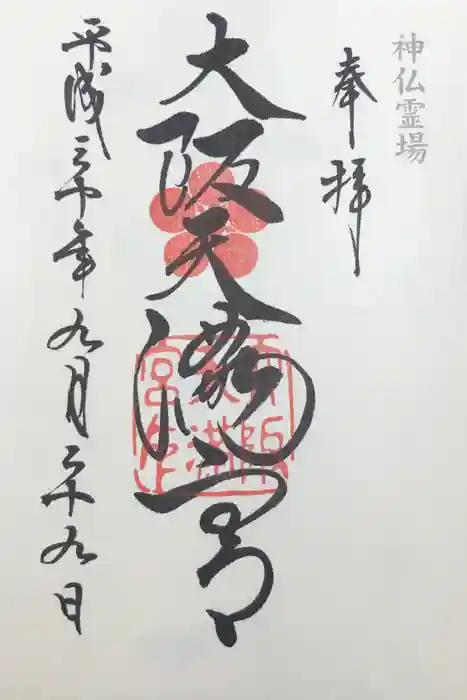 神仏霊場
奉拝
大阪天満宮
平成三十年九月二十九日